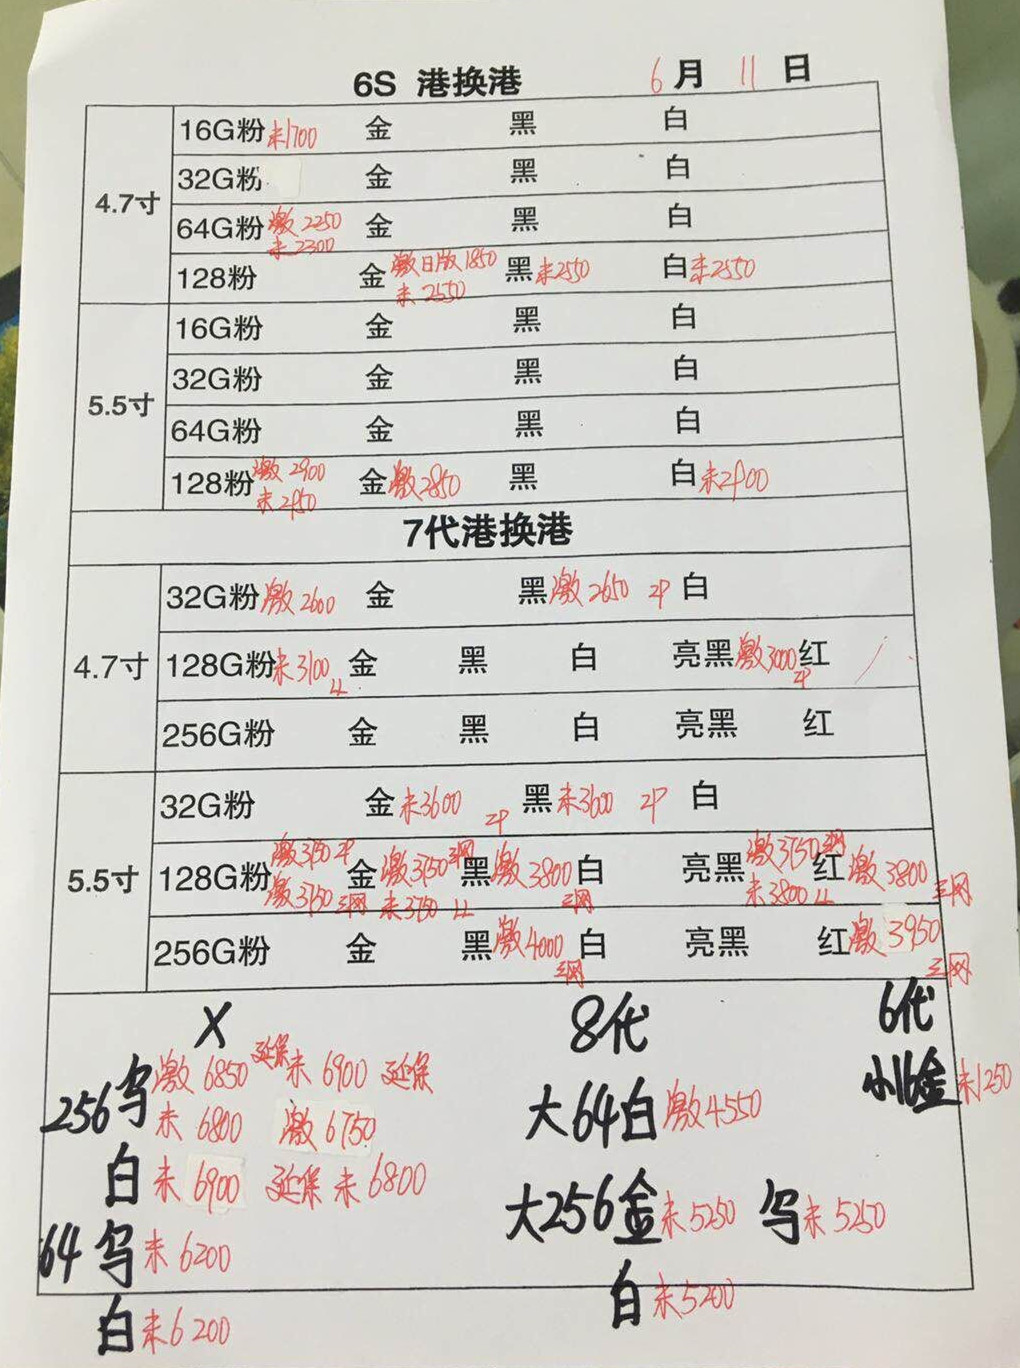 6S 港换港 6月11日
4.7寸
16G粉 未1700 金 黑 白
32G粉 金 黑 白
64G粉 激2250 未2300 金 黑 白
128粉 金 激日版1850 未2550 黑 未2550 白 未2550
5.5寸
16G粉 金 黑 白
32G粉 金 黑 白
64G粉 金 黑 白
128粉 激2900 未2950 金 激2850 黑 白 未2900
7代港换港
4.7寸
32G粉 激2600 金 黑 激2650 ZP 白
128G粉 未3100 LL 金 黑 白 亮黑 激3000 ZP 红
256G粉 金 黑 白 亮黑 红
5.5寸
32G粉 金 未3600 ZP 黑 未3600 ZP 白
128G粉 激3750 ZP 激3750 三网 金 激3750 三网 未3750 LL 黑 激3800 三网 白 亮黑 激3750 三网 未3800 LL 红 激3800 三网
256G粉 金 黑 激4000 三网 白 亮黑 红 激3950 三网
X 8代 6代
256乌 激6850 延保 未6900 延保
未6800 激6750
白 未6900 延保 未6800
64乌 未6200
白 未6200
大64白 激4550
大256金 未5250 乌 未5250
白 未5200
小16金 未1250